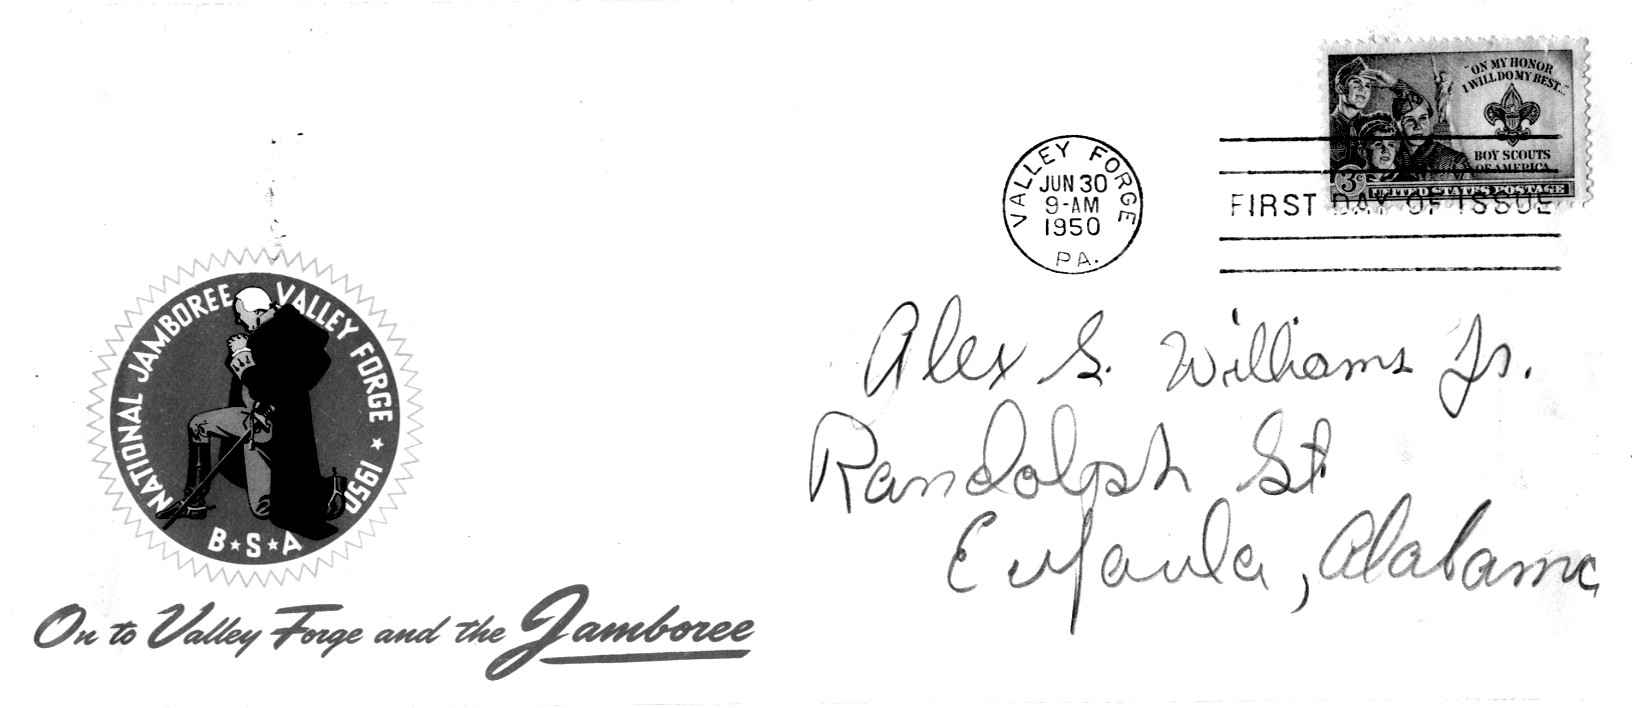 "ON MY HONOR
I WILL DO MY BEST..."
BOY SCOUTS
OF AMERICA
3¢ UNITED STATES POSTAGE
VALLEY FORGE
JUN 30
9-AM
1950
PA.
FIRST DAY OF ISSUE
NATIONAL JAMBOREE VALLEY FORGE ★ 1950
B★S★A
On to Valley Forge and the Jamboree
Alex S. Williams Jr.
Randolph St
Eufaula, Alabama